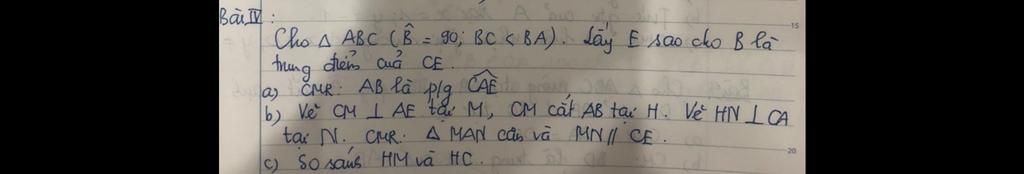 Bài IV:
Cho Δ ABC (B̂ = 90; BC < BA). Lấy E sao cho B là
trung điểm của CE.
a) CMR: AB là p/g CAE
b) Vẽ CM ⊥ AE tại M, CM cắt AB tại H. Vẽ HN ⊥ CA
tại N. CMR: Δ MAN cân và MN // CE.
c) So sánh HM và HC.
15
20